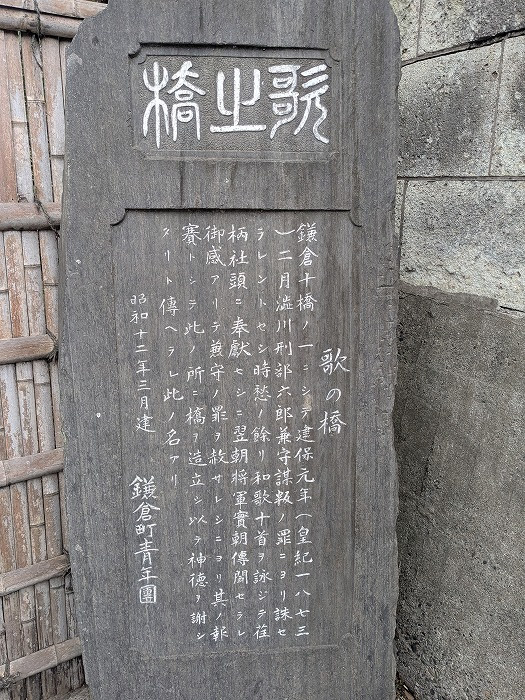 歌之橋
歌の橋
鎌倉十橋ノ一ニシテ建保元年(皇紀一八七三
)二月澁川刑部六郎兼守謀叛ノ罪ニヨリ誅セ
ラレントセシ時愁ノ餘リ和歌十首ヲ詠ジテ荏
柄社頭ニ奉獻セシニ翌朝將軍實朝傳聞セラレ
御感アリテ兼守ノ罪ヲ赦サレシニヨリ其ノ報
賽トシテ此ノ所ニ橋ヲ造立シ以テ神徳ヲ謝シ
タリト傳ヘラレ此ノ名アリ
昭和十二年三月建
鎌倉町青年團